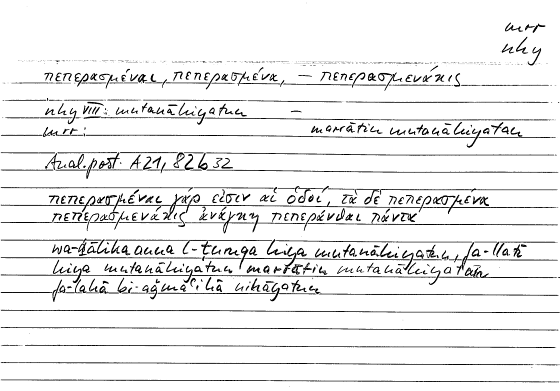 mrr
nhy
πεπερασμέναι, πεπερασμένα, — πεπερασμενάκις
nhy VIII: mutanāhiyatun —
mrr: marrātin mutanāhiyatan
Anal. post. A 21, 82b32
πεπερασμέναι γάρ εἰσιν αἱ ὁδοί, τὰ δὲ πεπερασμένα
πεπερασμενάκις ἀνάγκη πεπεράνθαι πάντα
wa-ḏālika anna l-ṭuruqa hiya mutanāhiyatun, fa-llatī
hiya mutanāhiyatun marrātin mutanāhiyatan
fa-lahā bi-aǧmaʿihā nihāyatun